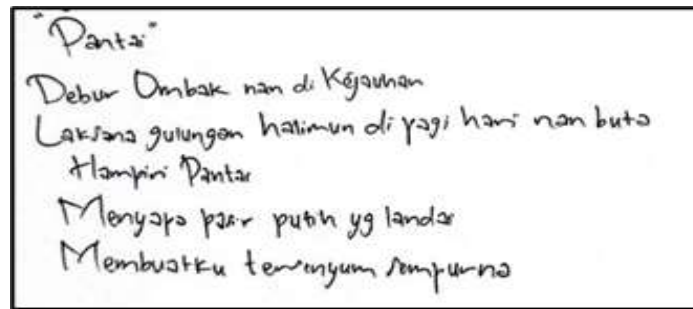 "Pantai"
Debur Ombak nan di Kejauhan
Laksana gulungan halimun di pagi hari nan buta
Hampiri Pantai
Menyapa pasir putih yg landai
Membuatku tersenyum sempurna